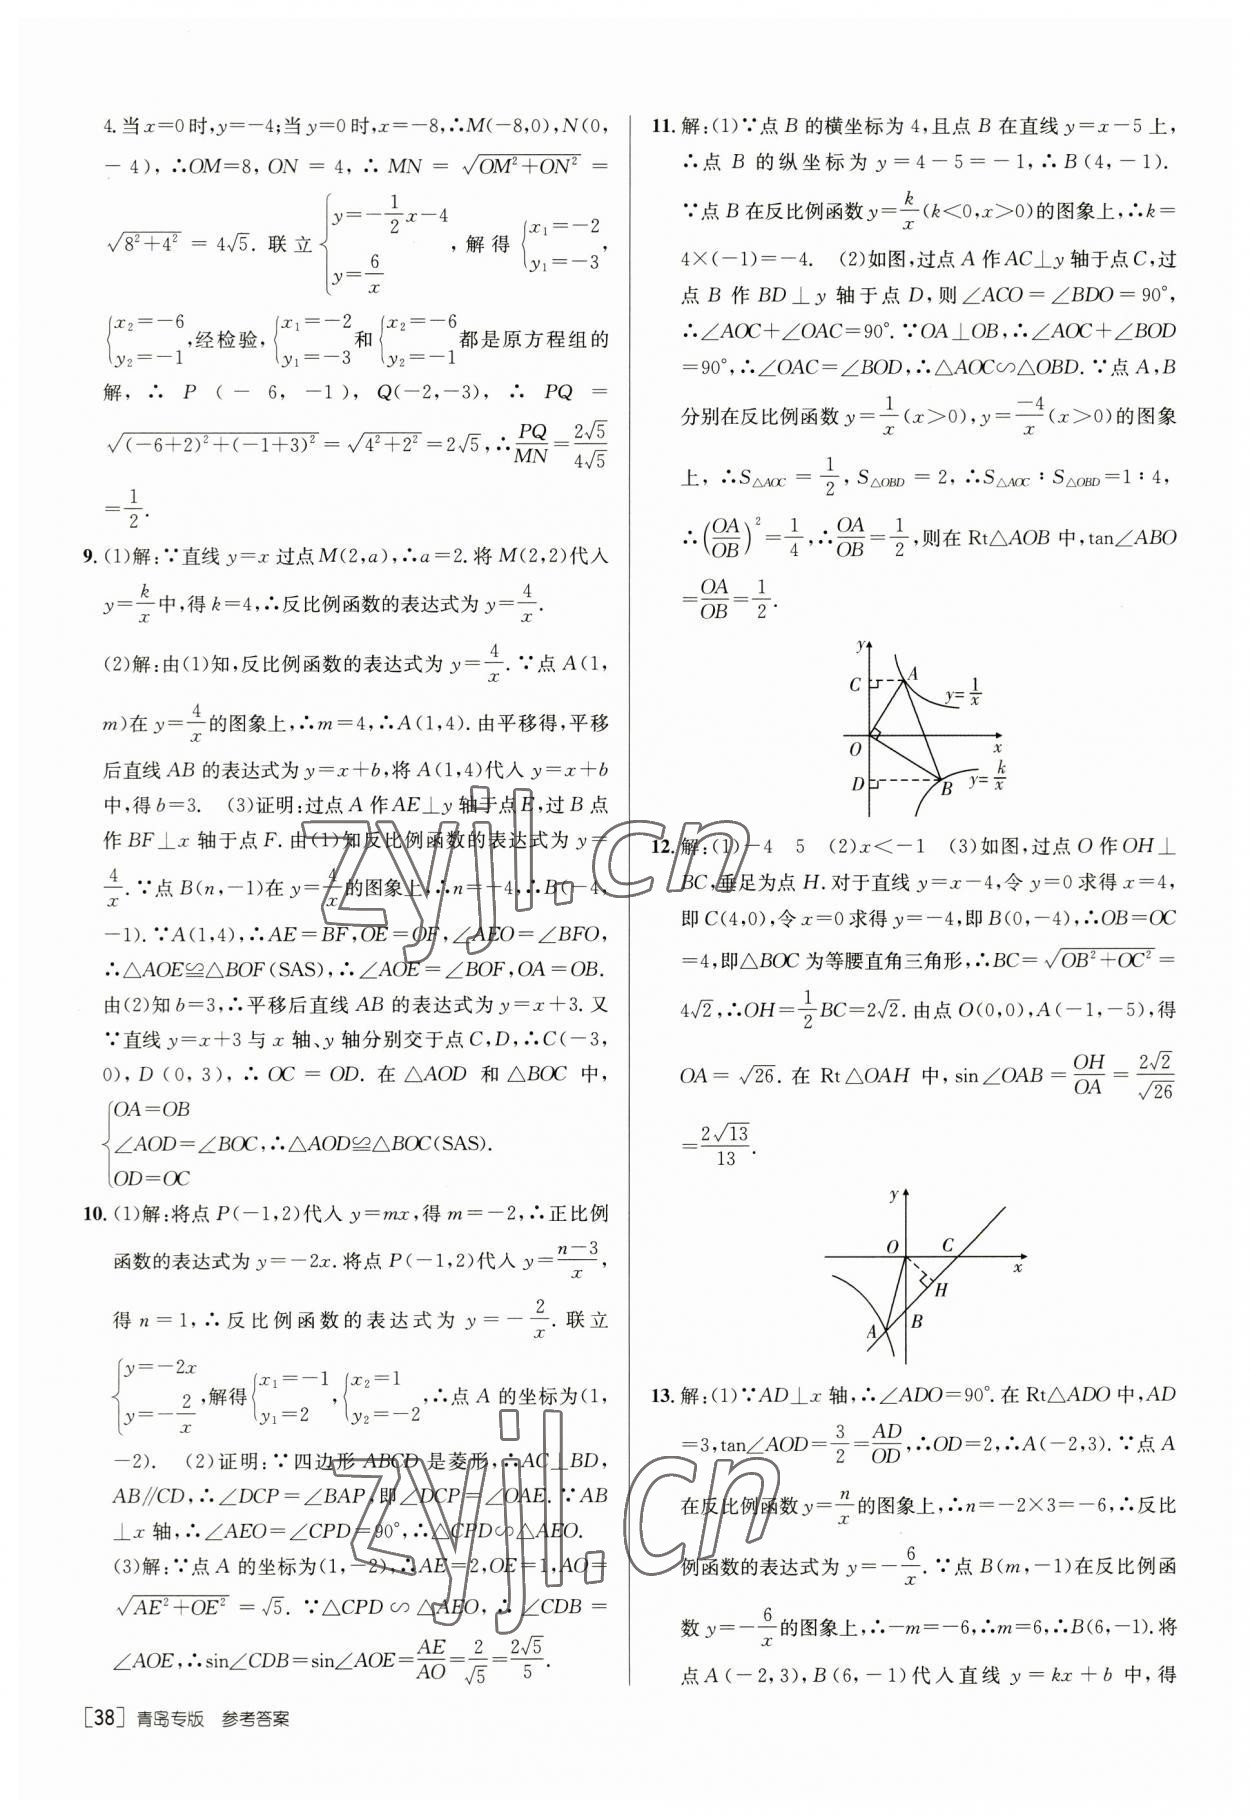 4.当x=0时,y=-4;当y=0时,x=-8,∴M(-8,0),N(0,
-4),∴OM=8,ON=4,∴MN=√(OM²+ON²)=
√(8²+4²)=4√5.联立{y=-1/2x-4, y=6/x,解得{x₁=-2, y₁=-3,
{x₂=-6, y₂=-1,经检验,{x₁=-2, y₁=-3和{x₂=-6, y₂=-1都是原方程组的
解,∴P(-6,-1),Q(-2,-3),∴PQ=
√((-6+2)²+(-1+3)²)=√(4²+2²)=2√5,∴PQ/MN=2√5/4√5
=1/2.
9.(1)解:∵直线y=x过点M(2,a),∴a=2.将M(2,2)代入
y=k/x中,得k=4,∴反比例函数的表达式为y=4/x.
(2)解:由(1)知,反比例函数的表达式为y=4/x.∵点A(1,
m)在y=4/x的图象上,∴m=4,∴A(1,4).由平移得,平移
后直线AB的表达式为y=x+b,将A(1,4)代入y=x+b
中,得b=3. (3)证明:过点A作AE⊥y轴于点E,过B点
作BF⊥x轴于点F.由(1)知反比例函数的表达式为y=
4/x.∵点B(n,-1)在y=4/x的图象上,∴n=-4,∴B(-4,
-1).∵A(1,4),∴AE=BF,OE=OF,∠AEO=∠BFO,
∴△AOE≌△BOF(SAS),∴∠AOE=∠BOF,OA=OB.
由(2)知b=3,∴平移后直线AB的表达式为y=x+3.又
∵直线y=x+3与x轴、y轴分别交于点C,D,∴C(-3,
0),D(0,3),∴OC=OD.在△AOD和△BOC中,
{OA=OB
∠AOD=∠BOC,∴△AOD≌△BOC(SAS).
OD=OC
10.(1)解:将点P(-1,2)代入y=mx,得m=-2,∴正比例
函数的表达式为y=-2x.将点P(-1,2)代入y=n-3/x,
得n=1,∴反比例函数的表达式为y=-2/x.联立
{y=-2x, y=-2/x,解得{x₁=-1, y₁=2,{x₂=1, y₂=-2,∴点A的坐标为(1,
-2). (2)证明:∵四边形ABCD是菱形,∴AC⊥BD,
AB∥CD,∴∠DCP=∠BAP,即∠DCP=∠OAE.∵AB
⊥x轴,∴∠AEO=∠CPD=90°,∴△CPD∽△AEO.
(3)解:∵点A的坐标为(1,-2),∴AE=2,OE=1,AO=
√(AE²+OE²)=√5.∵△CPD∽△AEO,∴∠CDB=
∠AOE,∴sin∠CDB=sin∠AOE=AE/AO=2/√5=2√5/5.
[38] 青岛专版 参考答案
11.解:(1)∵点B的横坐标为4,且点B在直线y=x-5上,
∴点B的纵坐标为y=4-5=-1,∴B(4,-1).
∵点B在反比例函数y=k/x(k<0,x>0)的图象上,∴k=
4×(-1)=-4. (2)如图,过点A作AC⊥y轴于点C,过
点B作BD⊥y轴于点D,则∠ACO=∠BDO=90°,
∴∠AOC+∠OAC=90°.∵OA⊥OB,∴∠AOC+∠BOD
=90°,∴∠OAC=∠BOD,∴△AOC∽△OBD.∵点A,B
分别在反比例函数y=1/x(x>0),y=-4/x(x>0)的图象
上,∴S△AOC=1/2,S△OBD=2,∴S△AOC∶S△OBD=1∶4,
∴(OA/OB)²=1/4,∴OA/OB=1/2,则在Rt△AOB中,tan∠ABO
=OA/OB=1/2.
y
C A
y=1/x
O x
D B y=k/x
12.解:(1)-4 5 (2)x<-1 (3)如图,过点O作OH⊥
BC,垂足为点H.对于直线y=x-4,令y=0求得x=4,
即C(4,0),令x=0求得y=-4,即B(0,-4),∴OB=OC
=4,即△BOC为等腰直角三角形,∴BC=√(OB²+OC²)=
4√2,∴OH=1/2BC=2√2.由点O(0,0),A(-1,-5),得
OA=√26.在Rt△OAH中,sin∠OAB=OH/OA=2√2/√26
=2√13/13.
y
O C
x
H
A B
13.解:(1)∵AD⊥x轴,∴∠ADO=90°.在Rt△ADO中,AD
=3,tan∠AOD=3/2=AD/OD,∴OD=2,∴A(-2,3).∵点A
在反比例函数y=n/x的图象上,∴n=-2×3=-6,∴反比
例函数的表达式为y=-6/x.∵点B(m,-1)在反比例函
数y=-6/x的图象上,∴-m=-6,∴m=6,∴B(6,-1).将
点A(-2,3),B(6,-1)代入直线y=kx+b中,得
zyjl.cn
zyjl.cn